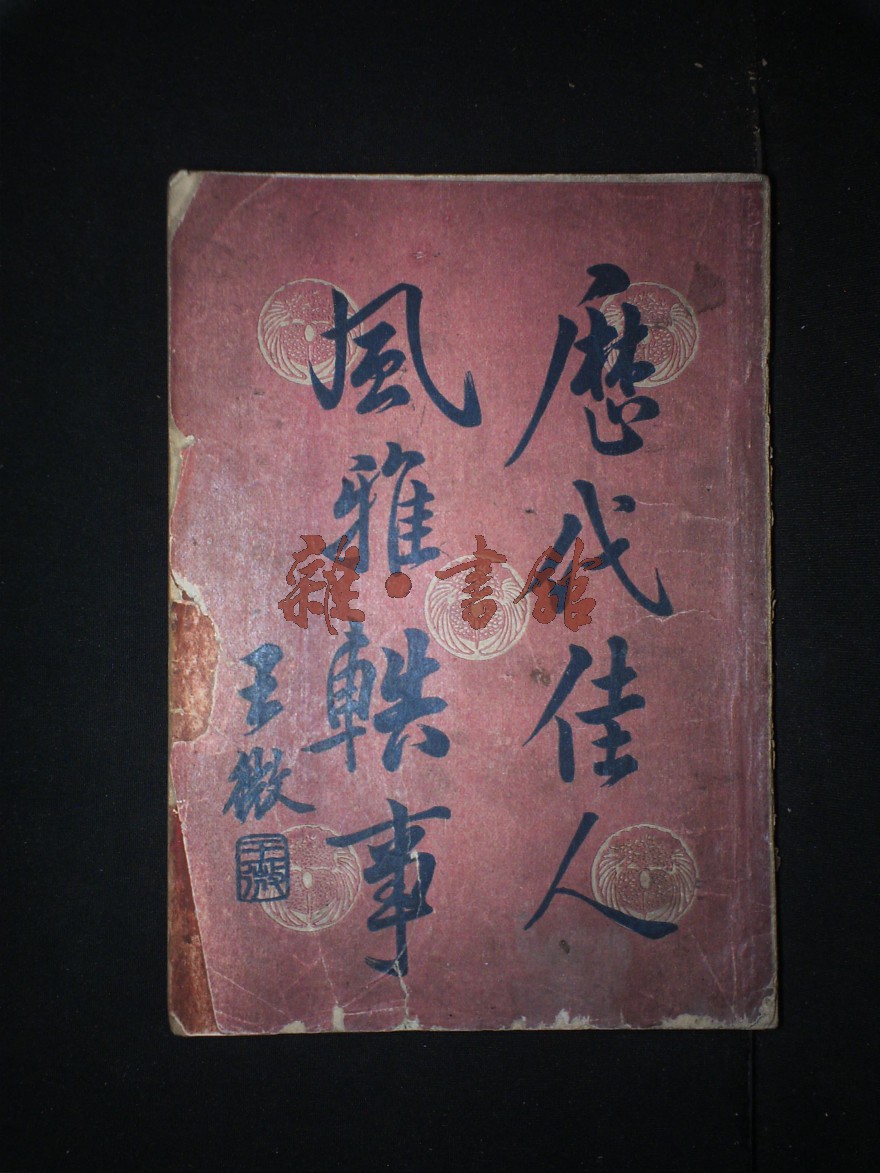 歷代佳人
風雅軼事
王微
王微
雜·書館